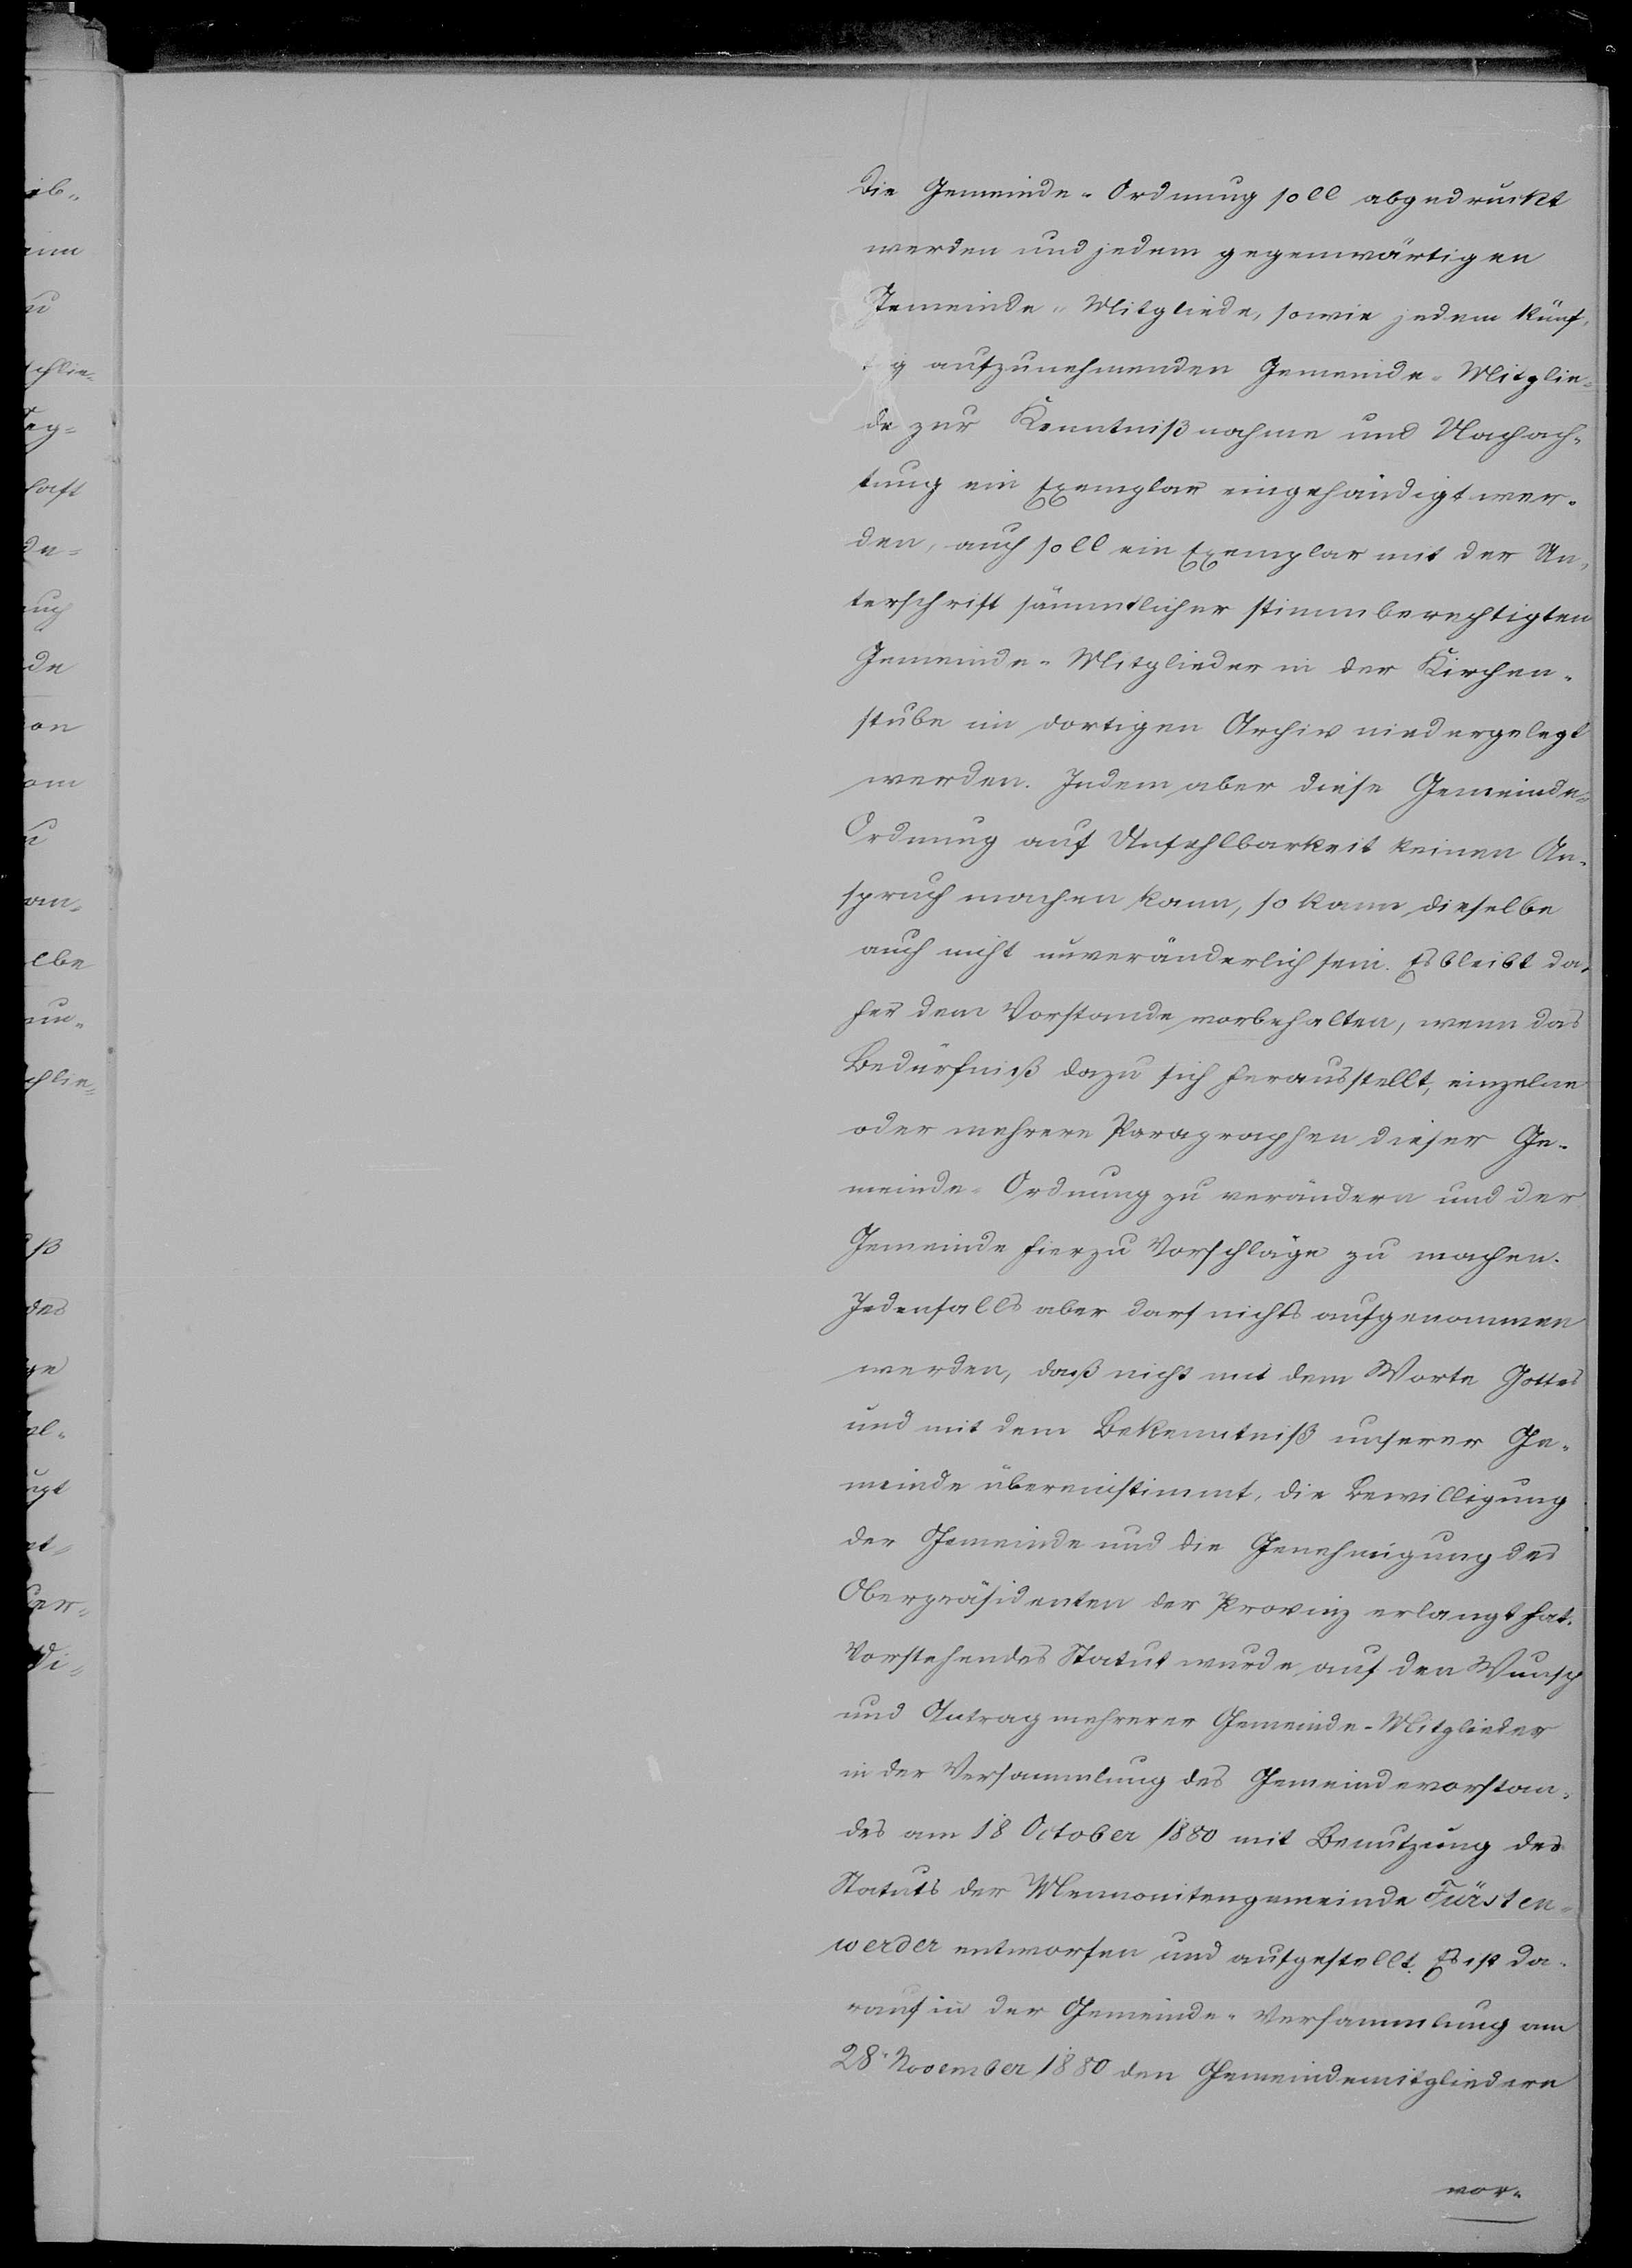 Die Gemeinde-Ordnung soll abgedruckt
werden und jedem gegenwärtigen
Gemeinde-Mitgliede, sowie jedem künf-
tig aufzunehmenden Gemeinde-Mitglie-
de zur Kenntnißnahme und Nachach-
tung ein Exemplar eingehändigt wer-
den, auch soll ein Exemplar mit der Un-
terschrift sämmtlicher stimmberechtigten
Gemeinde-Mitglieder in der Kirchen-
stube im dortigen Archiv niedergelegt
werden. Indem aber diese Gemeinde-
Ordnung auf Unfehlbarkeit keinen An-
spruch machen kann, so kann dieselbe
auch nicht unveränderlich sein. Es bleibt da-
her dem Vorstande vorbehalten, wenn das
Bedürfniß dazu sich herausstellt, einzelne
oder mehrere Paragraphen dieser Ge-
meinde-Ordnung zu verändern und der
Gemeinde hierzu Vorschläge zu machen.
Jedenfalls aber darf nichts aufgenommen
werden, daß nicht mit dem Worte Gottes
und mit dem Bekenntniß unserer Ge-
meinde übereinstimmt, die Bewilligung
der Gemeinde und die Genehmigung des
Oberpräsidenten der Provinz erlangt hat.
Vorstehendes Statut wurde auf den Wunsch
und Antrag mehrerer Gemeinde-Mitglieder
in der Versammlung des Gemeindevorstan-
des am 18 October 1880 mit Benutzung des
Statuts der Mennonitengemeinde Fürsten-
werder entworfen und aufgestellt. Es ist da-
rauf in der Gemeinde-Versammlung am
28. November 1880 den Gemeindemitgliedern
vor-